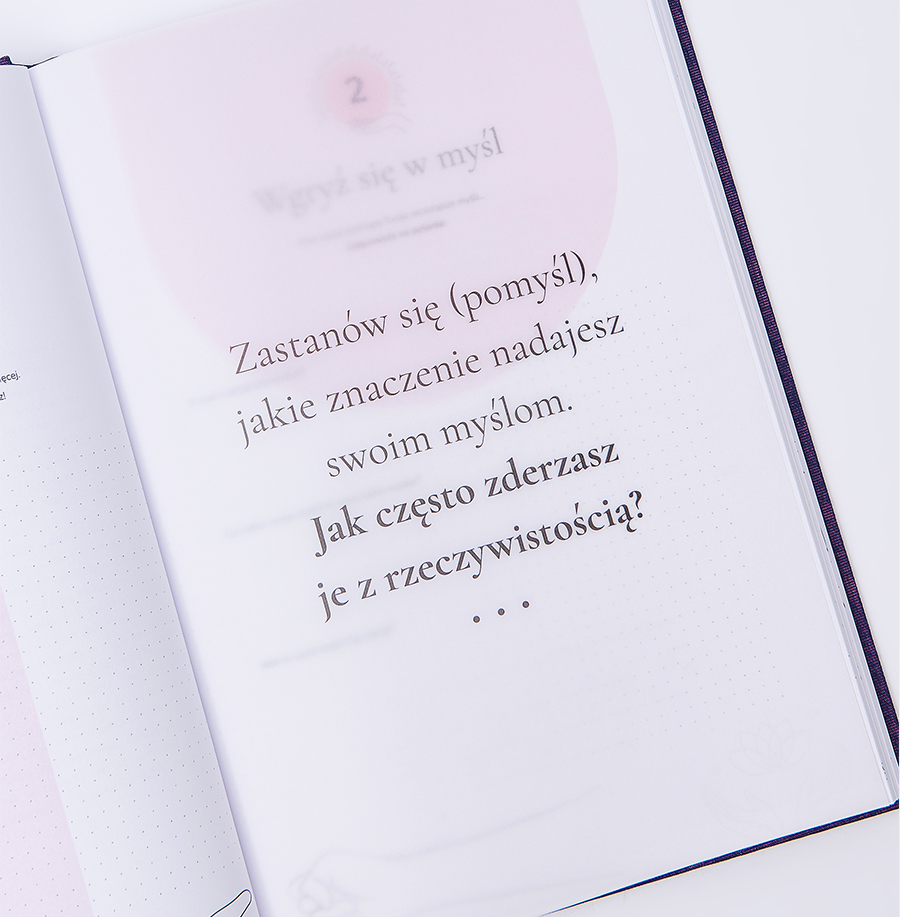 ęcej.
z!
2
Wgryź się w myśl
Zastanów się (pomyśl),
jakie znaczenie nadajesz
swoim myślom.
Jak często zderzasz
je z rzeczywistością?
• • •